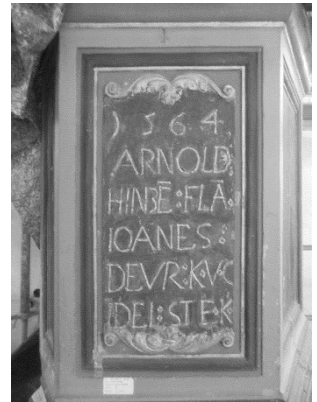 1564.
ARNOLD:
HINBĒ:FLĀ.
IOANES:
DEVR:K·V·C
DEL:STE·K